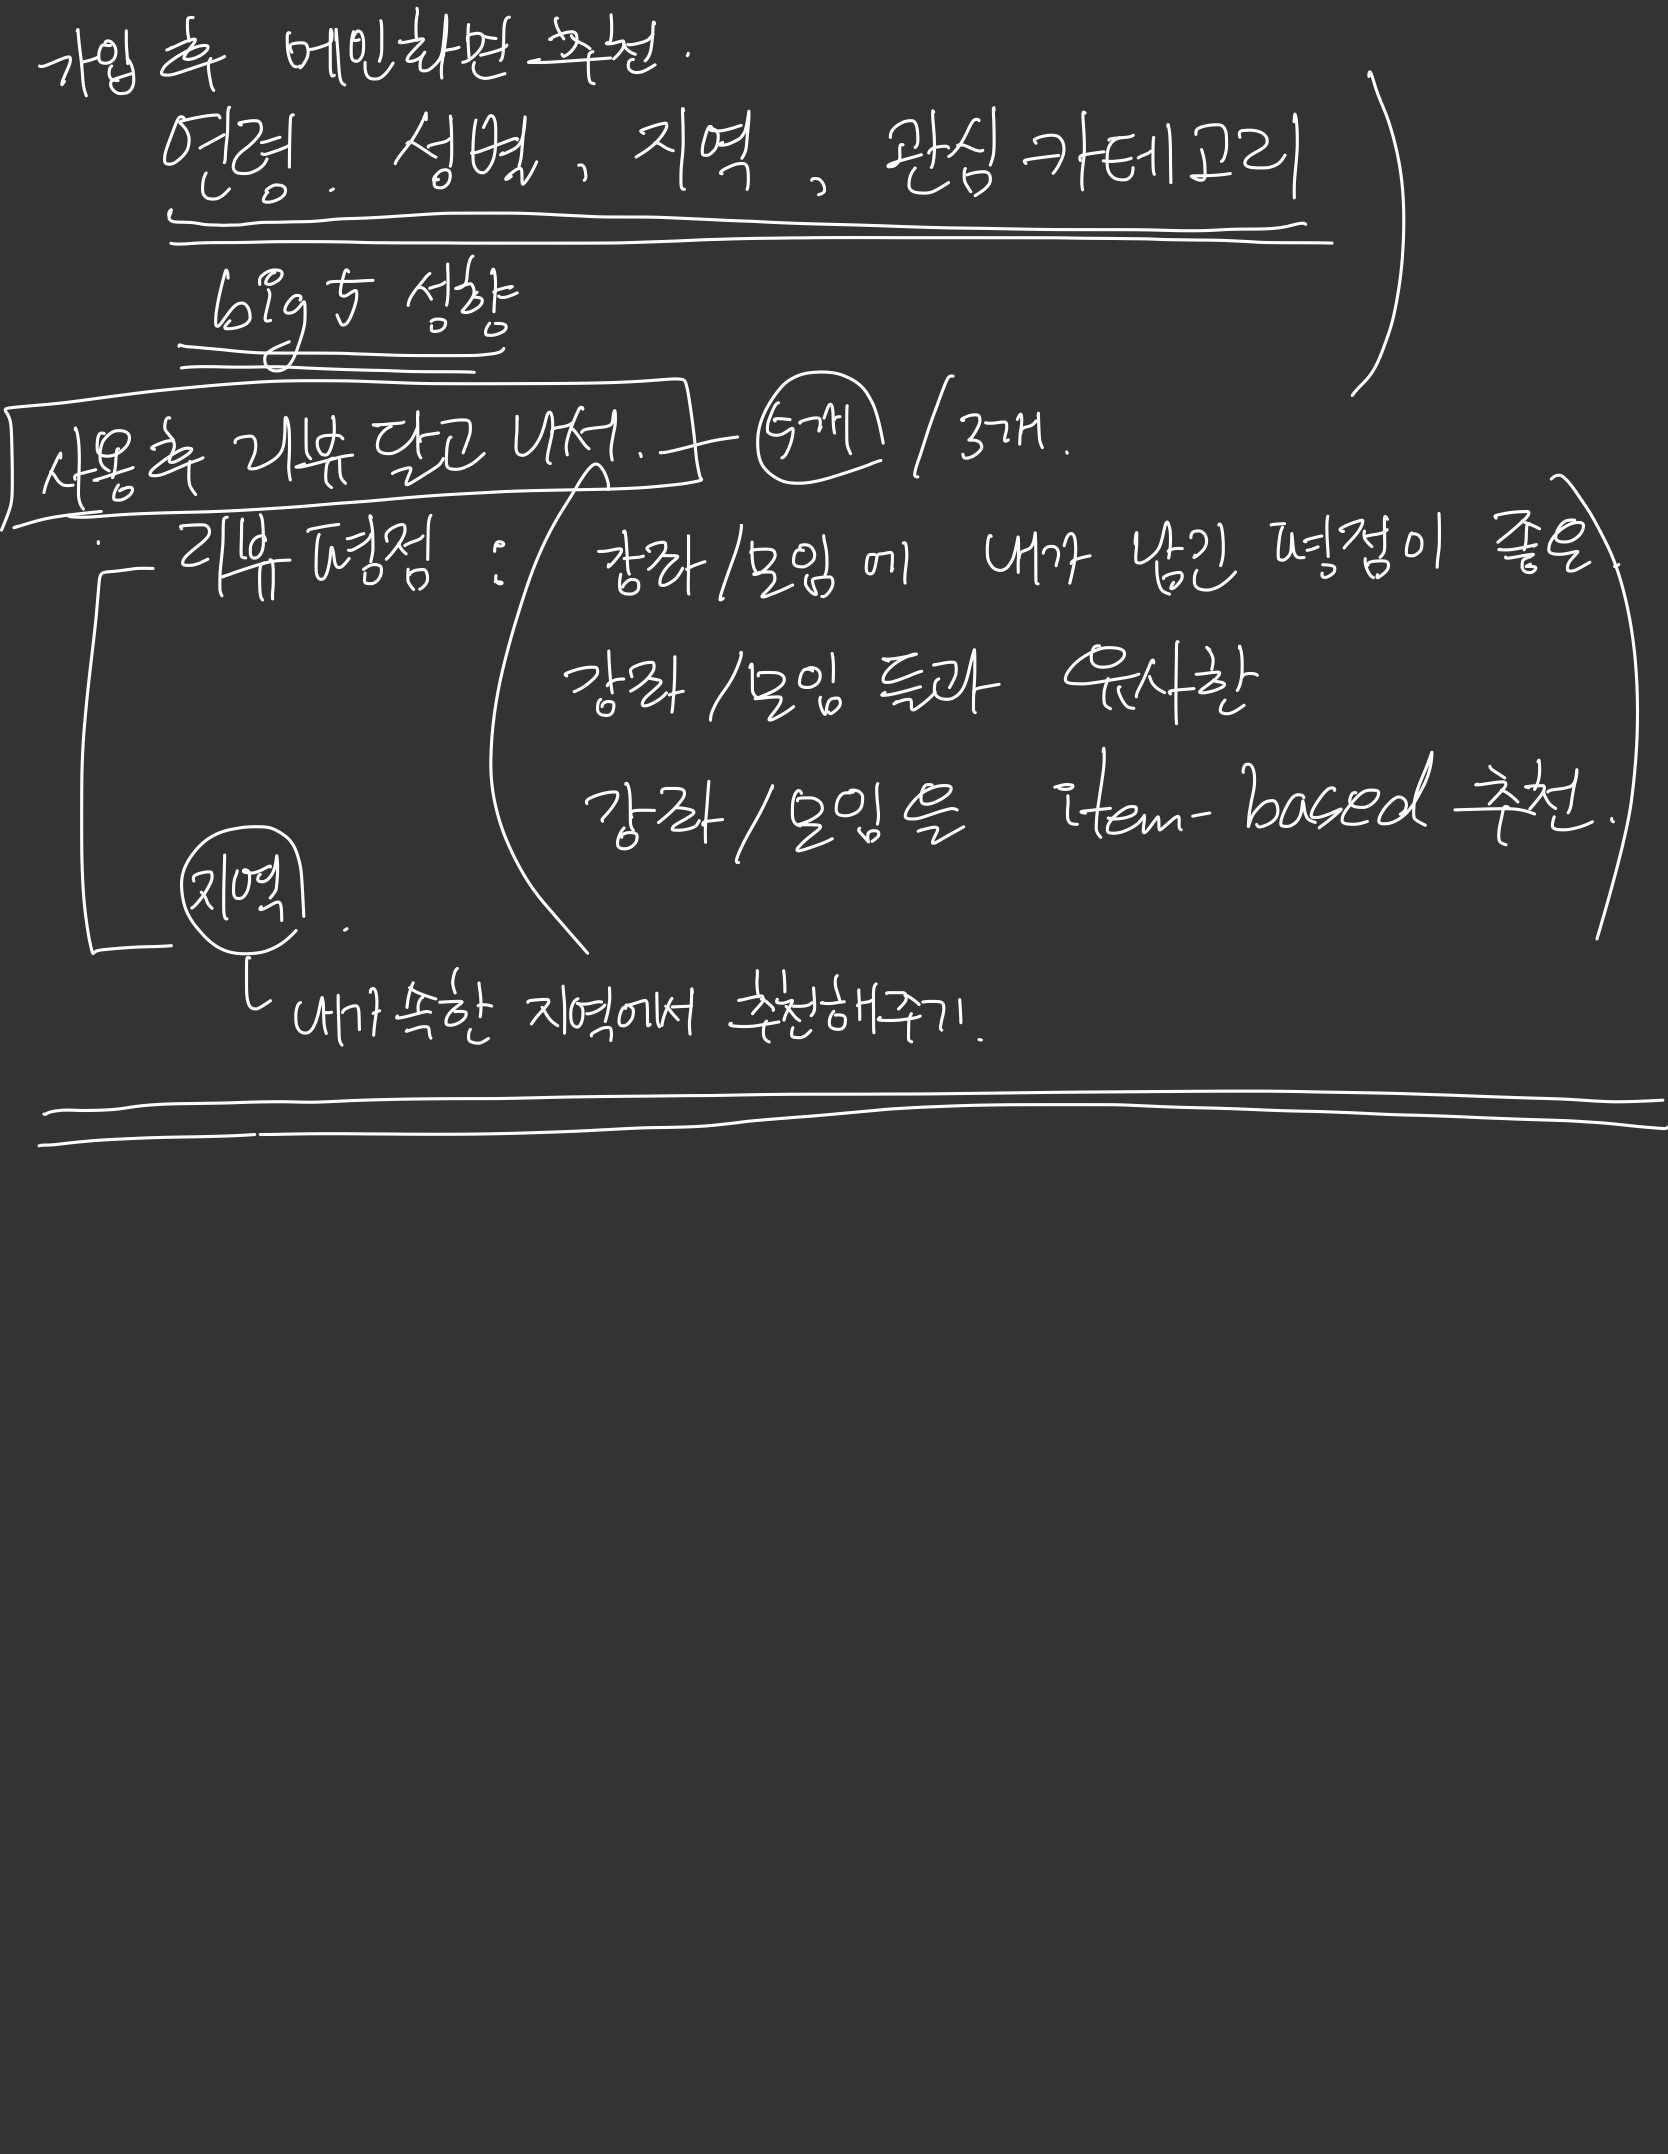 가입 후 메인화면 추천.
연령. 성별, 지역, 관심 카테고리
big 5 성향
사용 후 리뷰 달고 나서. 5개 / 3개.
· 리뷰 평점 : 강좌/모임에 내가 남긴 평점이 좋은
강좌/모임 들과 유사한
강좌/모임을 item-based 추천.
지역.
내가 속한 지역에서 추천해주기.